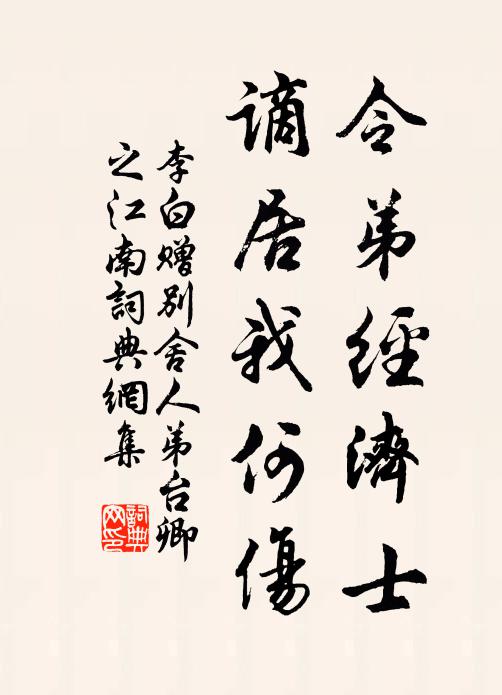 令弟經濟士
謫居我何傷
李白贈別舍人弟台卿
之江南詞典網集
詞典
网印